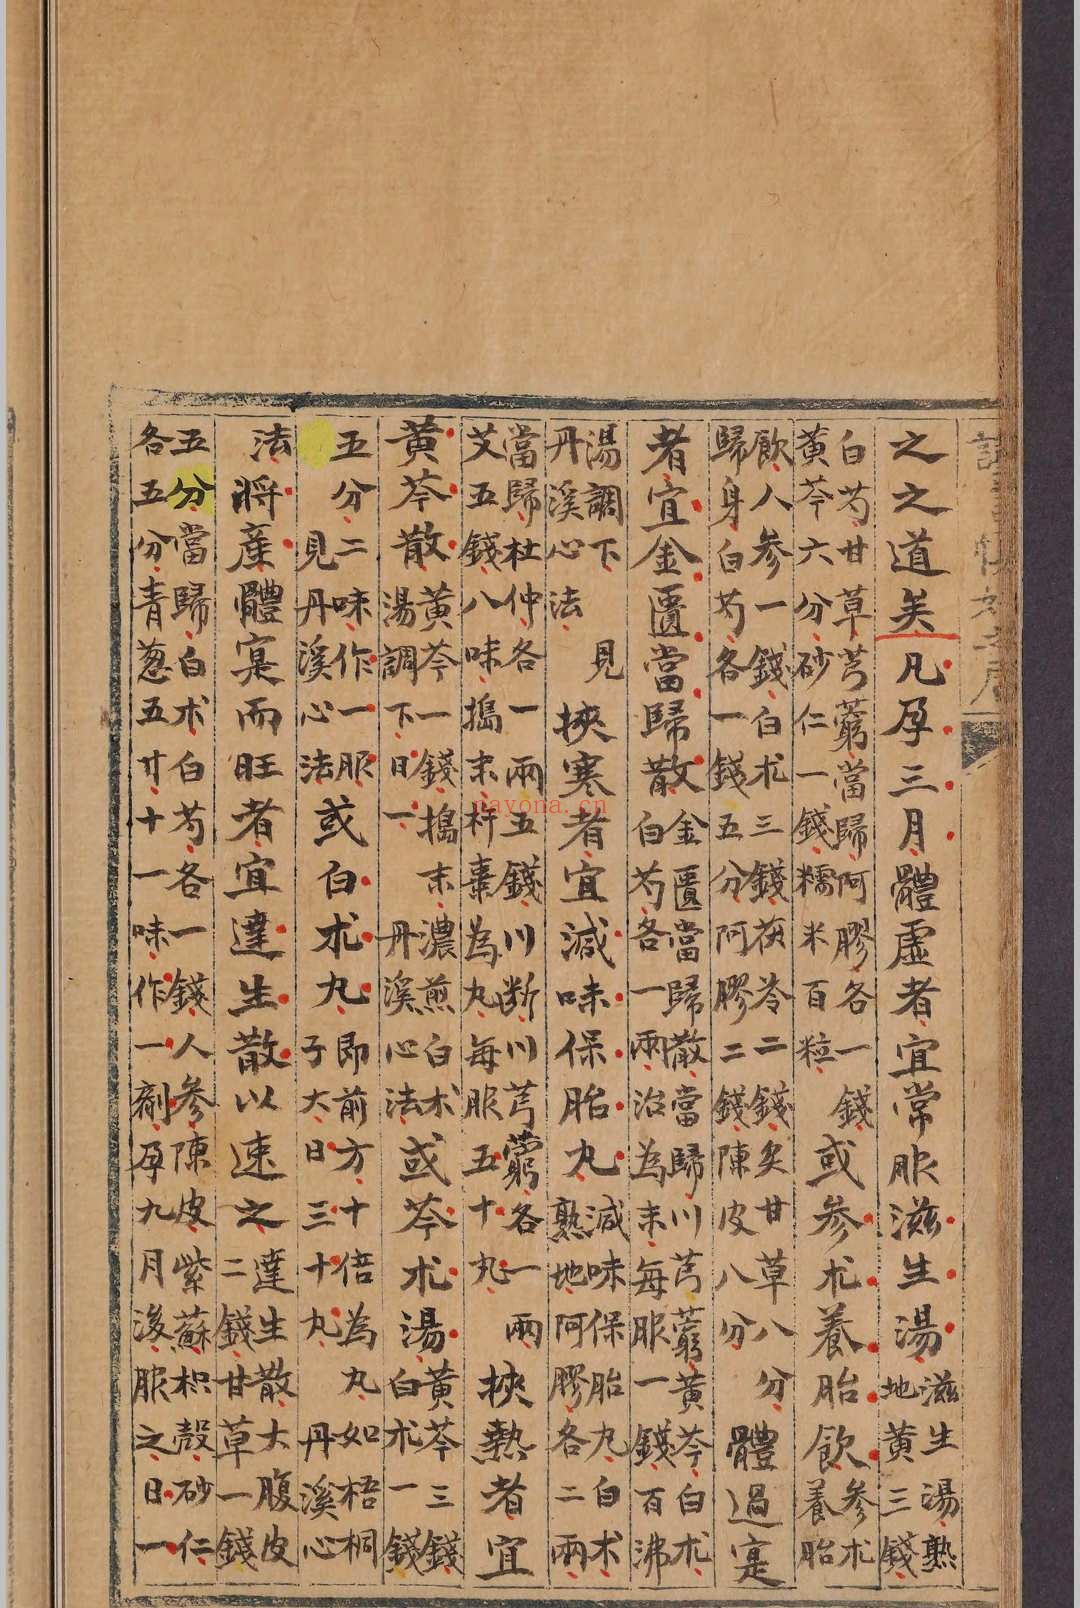 之之道矣凡孕三月體虛者宜常服滋生湯滋生湯熟地黄三錢
白芍甘草芎藭當歸阿膠各一錢黄芩六分砂仁一錢糯米百粒或參朮養胎飲參朮養胎
飲人參一錢白朮三錢茯苓二錢炙甘草八分歸身白芍各一錢五分阿膠二錢陳皮八分體過寔
者宜金匱當歸散金匱當歸散當歸川芎藭黄芩白朮白芍各一兩治為末每服一錢百沸
湯調下見丹溪心法挾寒者宜減味保胎丸減味保胎丸白术熟地阿膠各二兩
當歸杜仲各一兩五錢川断川芎藭各一兩艾五錢八味搗末杵棗為丸每服五十丸挾熱者宜
黄芩散黄芩一錢搗末濃煎白术湯調下日一丹溪心法或芩朮湯黄芩三錢白朮一錢
五分二味作一服見丹溪心法或白朮丸即前方十倍為丸如梧桐子大日三十丸丹溪心
法將產體寔而旺者宜達生散以速之達生散大腹皮二錢甘草一錢
五分當歸白术白芍各一錢人參陳皮紫蘇枳殼砂仁各五分青葱五寸十一味作一劑孕九月後服之日一
nayona.cn